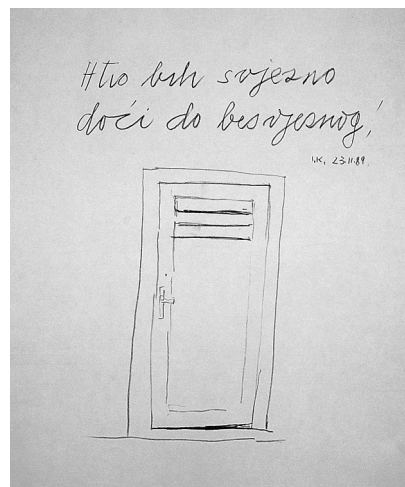 Htio bih svjesno
doći do besvjesnog!
I.K. 23.11.89.